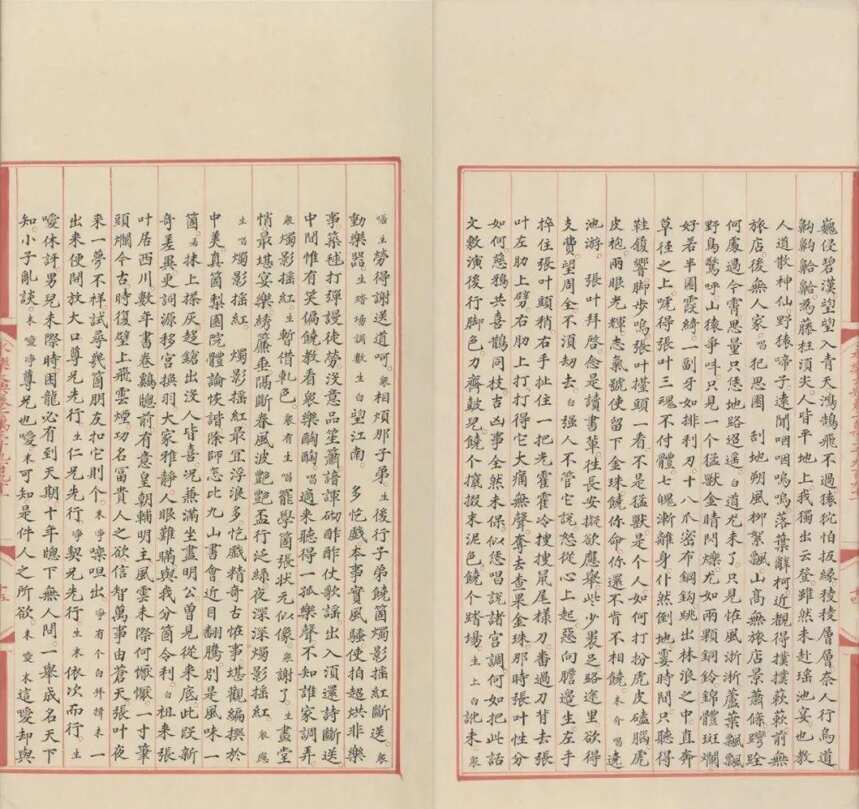 巍侵碧漢望望入青天鴻鵠飛不過猿狖怕扳緣稜稜層層奈人行鳥道
齁齁䶎䶎為藤柱須尖人皆平地上我獨出云登雖然未赴瑤池宴也教
人道散神仙野猿啼子遠聞咽咽嗚嗚落葉辭柯近覩得撲撲萩萩前無
旅店後無人家唱犯思園 刮地朔風柳絮飄山高無旅店景蕭條跧
何處過今宵思量只恁地路迢遥白道尤未了只見怪風淅淅蘆葉飄飄
野鳥驚呼山猿爭叫只見一个猛獸金睛閃爍尤如兩顆銅鈴錦體斑斕
好若半團霞綺一副牙如排利刃十八爪密布鋼鈎跳出林浪之中直奔
草徑之上諕得張叶三魂不付體七魄漸離身仆然倒地霎時間只聽得
鞋履響脚步鳴張叶擡頭一看不是猛獸是个人如何打扮虎皮磕腦虎
皮袍兩眼光輝志氣號使留下金珠饒你命你還不肯不相饒末介唱遶
池游 張叶拜啓念是讀書輩徃長安擬欲應舉些少裹足路途里欲得
支費望周全不須刼去白强人不管它説怒從心上起惡向膽邉生左手
捽住張叶頭稍右手扯住一把光霍霍冷搜搜鼠尾樣刀番過刀背去張
叶左肋上劈右肋上打打得它大痛無聲奪去查果金珠那時張叶性分
如何慈鴉共喜鵲同枝吉凶事全然未保似恁唱説諸宮調何如把此話
文敷演後行脚色力齊鼓兒饒个攛掇末泥色饒个踏場生上白訛未衆
喏生勞得謝送道呵衆相煩那子弟生後行子弟饒箇燭影摇紅斷送衆
動樂器生踏塲調數生白望江南 多忔戲本事實風騷使拍超烘非樂
事築毬打彈謾徒勞没意品笙簫諳諢砌酢酢仗歌謡出入須還詩斷送
中間惟有笑偏饒教看衆樂醄醄唱適來聽得一孤樂聲不知誰家調弄
衆燭影摇紅生暫借軋色衆有生唱罷學箇張狀元似像衆謝了生畫堂
悄最堪宴樂綉簾垂隔斷春風波艷艷盃行泛綠夜深深燭影摇紅衆應
生唱燭影摇紅 燭影摇紅最宜浮浪多忔戲精奇古恠事堪觀編撰於
中美真箇梨園院體論恢諧除師怎比九山書會近目翻騰别是風味一
箇若抹上搽灰趨䠓出没人皆喜況兼滿坐盡明公曾見從來底此叚新
奇差異更詞源移宮換羽大家雅靜人眼難瞞與我分箇令利白祖來張
叶居西川數年書卷雞牕前有意皇朝輔明主風雲未際何懨懨一寸筆
頭爛今古時復壁上飛雲煙功名富貴人之欲信智萬事由蒼天張叶夜
來一夢不祥試尋幾箇朋友扣它則个末浄嘹呾出浄有个白外揖末一
出來便開放大口尊兄先行生仁兄先行浄契兄先行生末依次而行生
噯休訝男兒未際時困龍必有到天期十年牕下無人問一舉成名天下
知小子亂談末噯浄尊兄也噯末可知是件人之所欲末噯末這噯却與